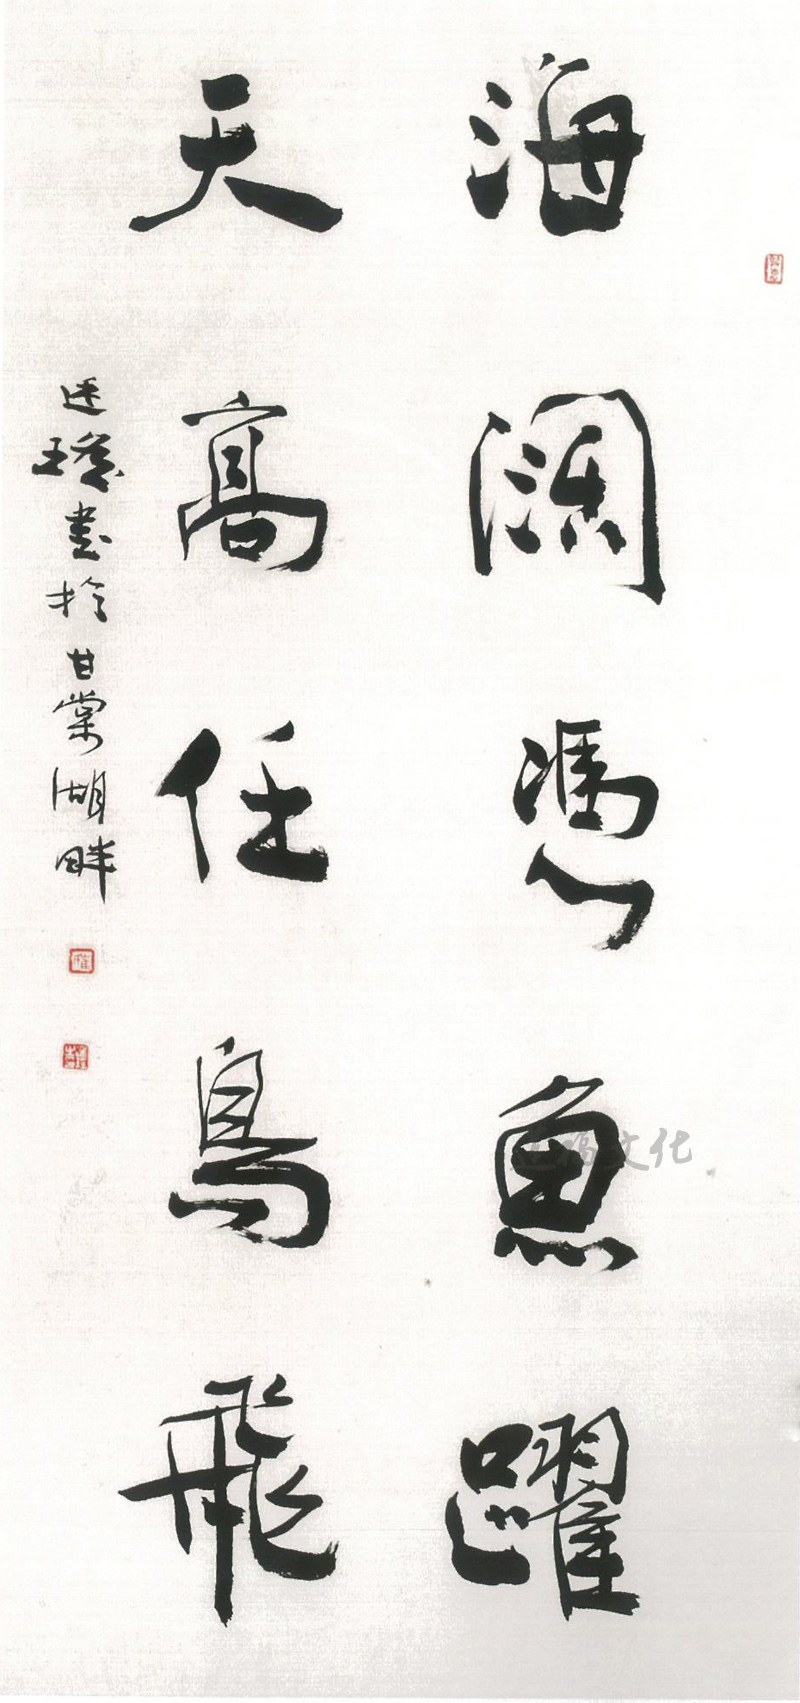 海闊憑魚躍
天高任鳥飛
廷瓊書於甘棠湖畔
文化